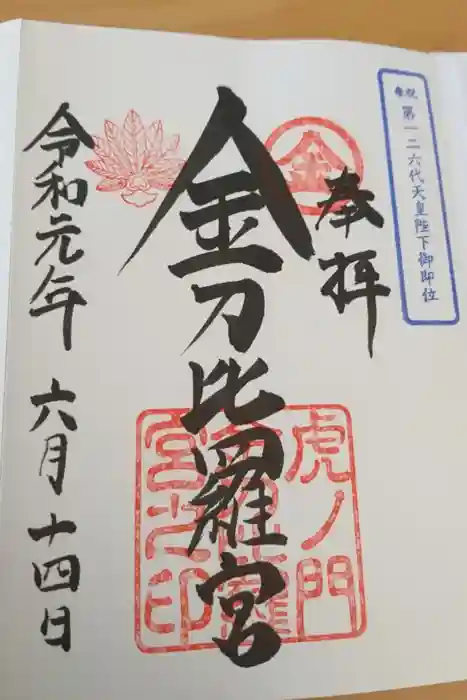 奉祝 第一二六代天皇陛下御即位
奉拝
金
金刀比羅宮
虎ノ門
金刀比羅
宮之印
令和元年 六月十四日